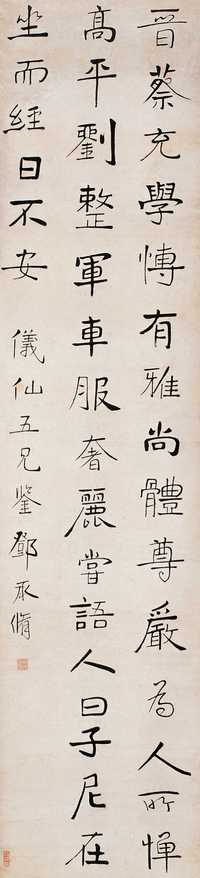 晉蔡充學博有雅尚體尊嚴為人所憚
髙平劉整軍車服奢麗嘗語人曰子尼在
坐而經日不安
儀仙五兄鑒鄧承脩